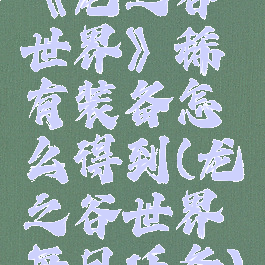 《龙之谷
世界》稀
有装备怎
么得到(龙
之谷世界
每日任务)